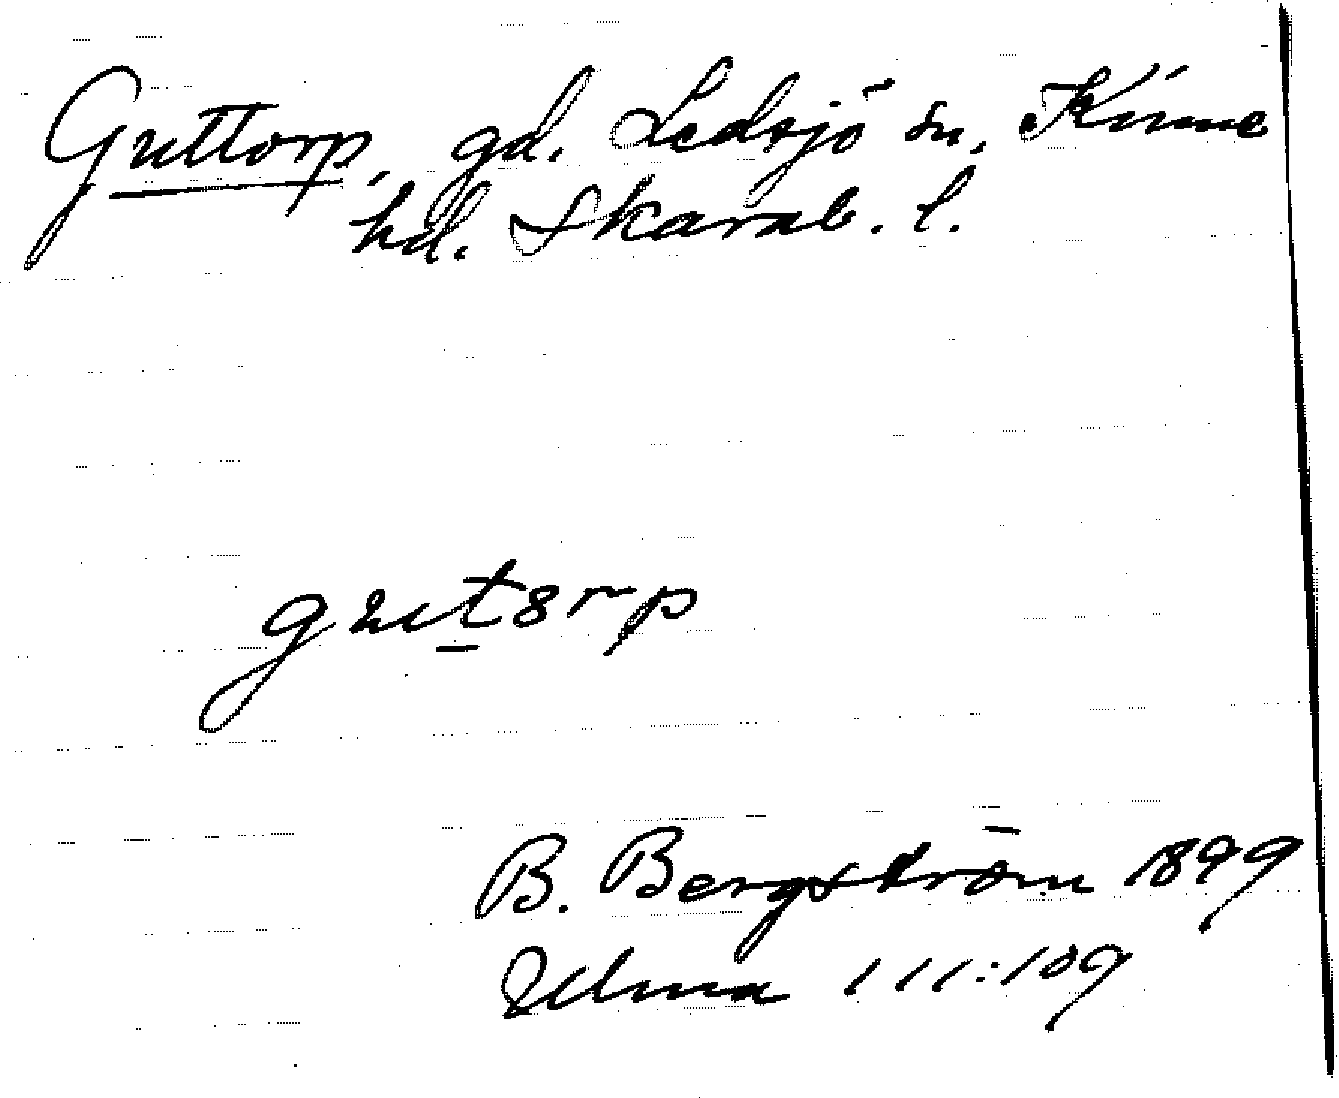 Guttorp, gd. Ledsjö sn, Kinne
hd. Skarab. l.
gut8rp
B. Bergström 1899
Ulma 111:109